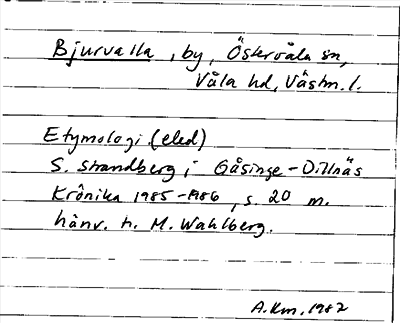 Bjurvalla, by, Östervåla sn,
Våla hd, Västm. l.
Etymologi (eled)
S. Strandberg i Gåsinge-Dillnäs
Krönika 1985-1986, s. 20 m.
hänv. t. M. Wahlberg.
A.Km. 1987